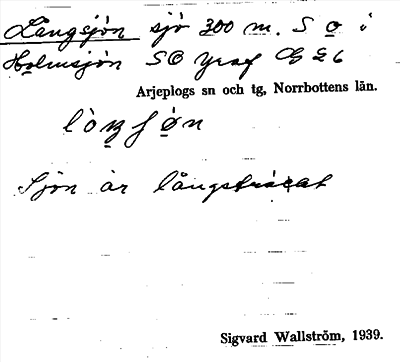 Långsjön sjö 300 m. S o i
Holmsjön SO
Arjeplogs sn och tg, Norrbottens län.
Sjön är långsträckt
Sigvard Wallström, 1939.